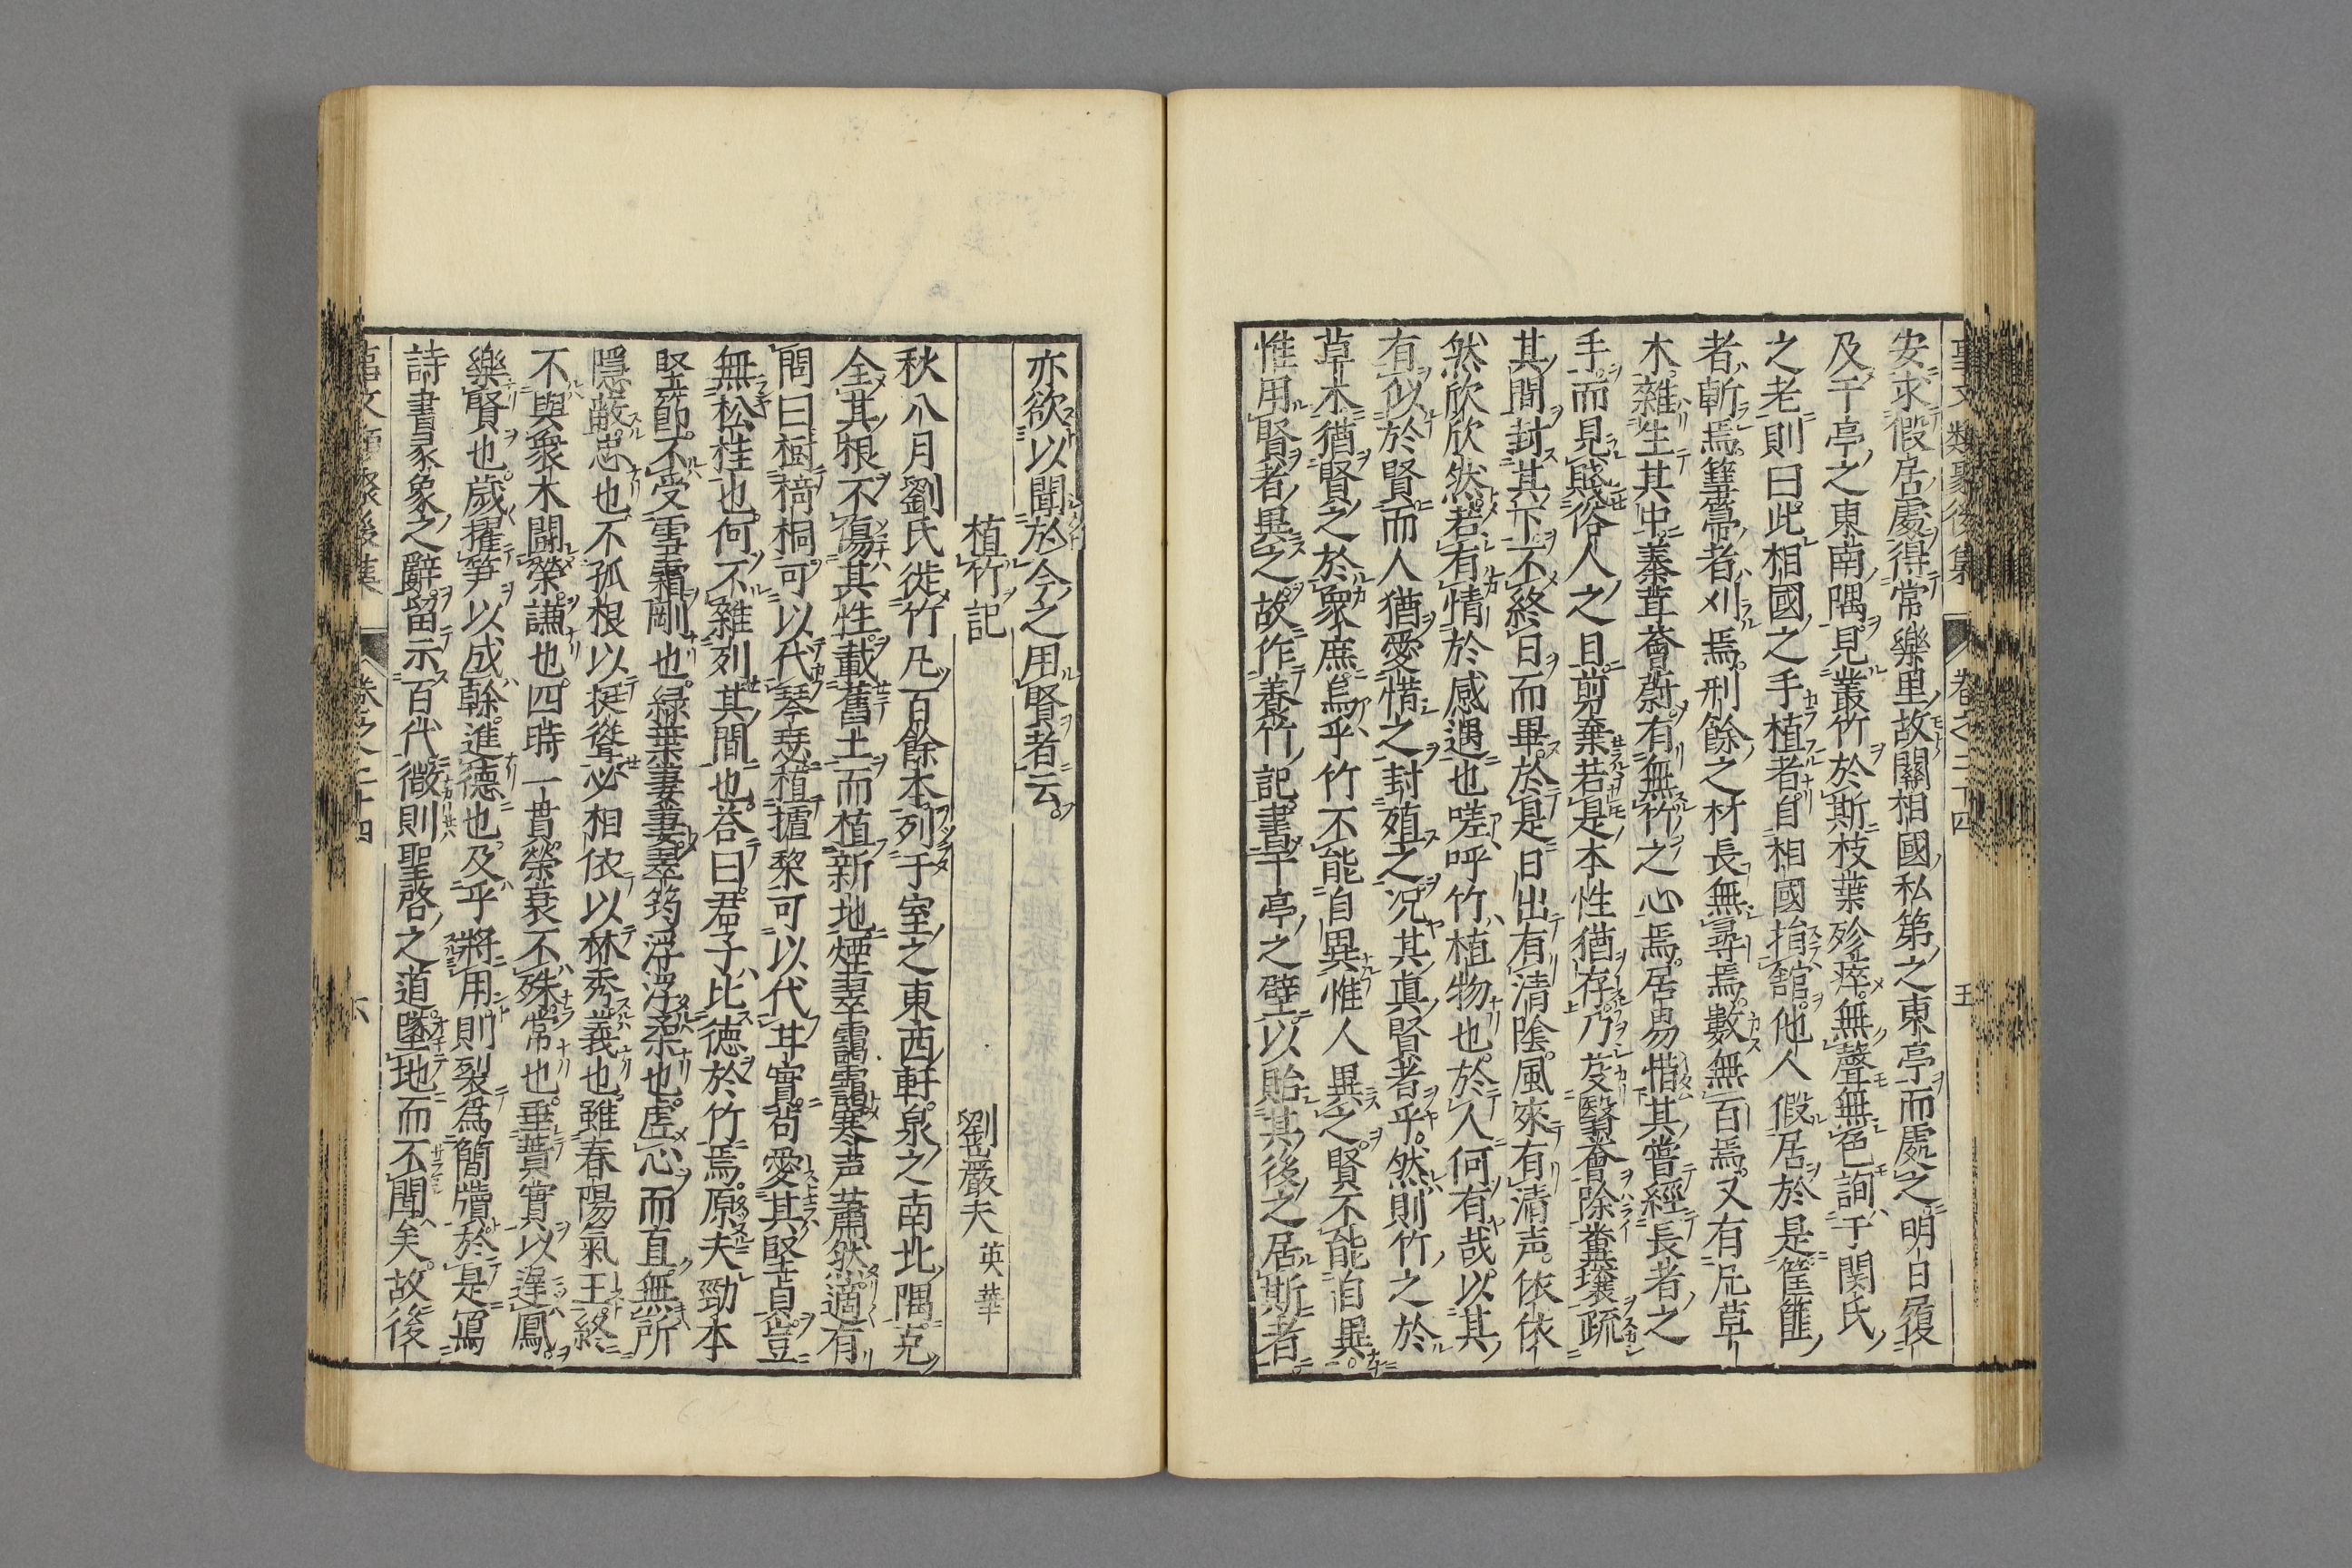 事文類聚後集 卷之二十四 五
安求假居處得常樂里故關相國私第之東亭而處之明日履
及于亭之東南隅見叢竹於斯枝葉殄瘁無聲無色詢于関氏
之老則曰此相國之手植者自相國捐舘他人假居於是筐篚
者斬焉篲箒者刈焉刑餘之材長無尋焉數無百焉又有凡草
木雜生其中菶茸薈蔚有無竹之心焉居易惜其嘗經長者之
手而見賤俗人之目剪棄若是本性猶存乃芟蘙薈除糞壤疏
其間封其下不終日而畢於是日出有清陰風來有清声依依
然欣欣然若有情於感遇也嗟呼竹植物也於人何有哉以其
有似於賢而人猶愛惜之封殖之况其真賢者乎然則竹之於
草木猶賢之於衆庶烏乎竹不能自異惟人異之賢不能自異
惟用賢者異之故作養竹記書于亭之壁以貽其後之居斯者
亦欲以聞於今之用賢者云
植竹記 劉嵒夫 英華
秋八月劉氏徙竹凡百餘本列于室之東西軒泉之南北隅克
全其根不傷其性載舊土而植新地煙翠靄靄寒声蕭然適有
問曰樹椅桐可以代琴瑟植摣黎可以代甘實苟愛其堅貞豈
無松桂也何不雜列其間也荅曰君子比德於竹焉原夫勁本
堅節不受雪霜剛也緑葉萋萋翠筠浮浮柔也虚心而直無所
隱蔽忠也不孤根以挺聳必相依以林秀義也雖春陽氣王終
不與衆木鬪榮謙也四時一貫榮衰不殊常也垂蕡實以遲鳳
樂賢也歲擢笋以成榦進德也及乎將用則裂為簡牘於是寫
詩書彖象之辭留示百代微則聖啓之道墜地而不聞矣故後
事文類聚後集 卷之二十四 六